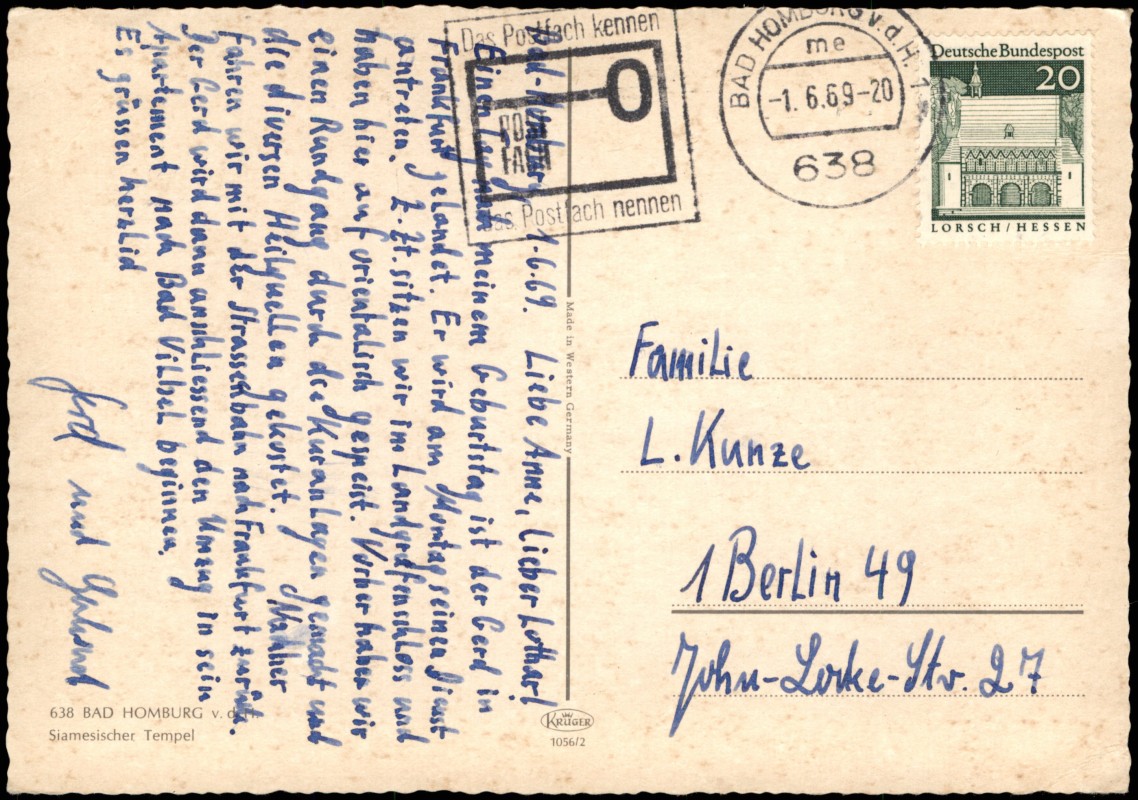 Das Postfach kennen
POST
FACH
Das Postfach nennen
BAD HOMBURG v.d.H. 1
me
-1. 6.69-20
638
Deutsche Bundespost
20
LORSCH / HESSEN
Bad-Homburg 1.6.69. Liebe Anne, Lieber Lothar!
Einen Tag nach meinem Geburtstag ist der Gerd in
Frankfurt gelandet. Er wird am Montag seinen Dienst
antreten. Z.Zt. sitzen wir im Landgrafenschloss und
haben hier auf orientalisch gespeist. Vorher haben wir
einen Rundgang durch die Kuranlagen gemacht und
die diversen Heilquellen gekostet. Nachher
fahren wir mit der Strassenbahn nach Frankfurt zurück.
Der Gerd wird dann anschliessend den Umzug in sein
Apartement nach Bad Vilbel beginnen.
Es grüssen herzlich
Gerd und
Made in Western Germany
Familie
L. Kunze
1 Berlin 49
John-Locke-Str. 27
638 BAD HOMBURG v. d. H.
Siamesischer Tempel
KRÜGER
1056/2